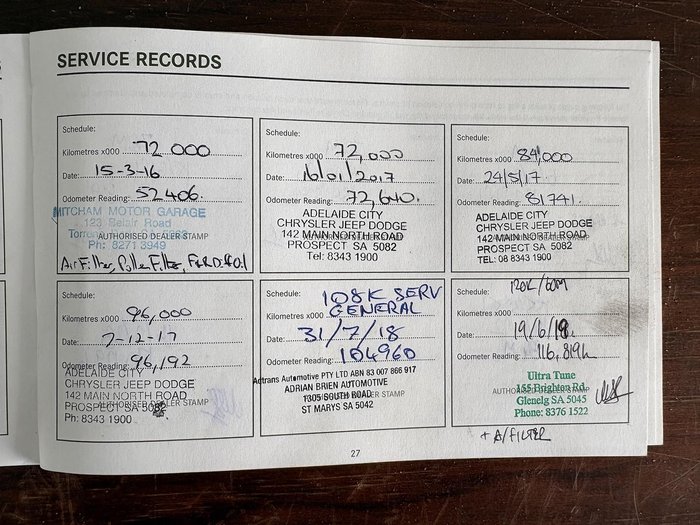 SERVICE RECORDS
Schedule:
Kilometres x000 72 000
Date: 15-3-16
Odometer Reading: 52406.
MITCHAM MOTOR GARAGE
123 Belair Road
AUTHORISED DEALER STAMP
Ph: 8271 3949
Air Filter, Pollen Filter,
Schedule:
Kilometres x000 72,000
Date: 16/01/2017
Odometer Reading: 72,640.
ADELAIDE CITY
CHRYSLER JEEP DODGE
142 MAIN NORTH ROAD
AUTHORISED DEALER STAMP
PROSPECT SA 5082
Tel: 8343 1900
Schedule:
Kilometres x000 84,000
Date: 24/5/17.
Odometer Reading: 81741.
ADELAIDE CITY
CHRYSLER JEEP DODGE
142 MAIN NORTH ROAD
AUTHORISED DEALER STAMP
PROSPECT SA 5082
TEL: 08 8343 1900
Schedule:
Kilometres x000 96,000
Date: 7-12-17
Odometer Reading: 96,192
ADELAIDE CITY
CHRYSLER JEEP DODGE
142 MAIN NORTH ROAD
AUTHORISED DEALER STAMP
PROSPECT SA 5082
Ph: 8343 1900
Schedule: 108K SERV
GENERAL
Kilometres x000
Date: 31/7/18
Odometer Reading: 104960
Adtrans Automotive PTY LTD ABN 83 007 866 917
ADRIAN BRIEN AUTOMOTIVE
1305 SOUTH ROAD
AUTHORISED DEALER STAMP
ST MARYS SA 5042
Schedule: 120K/60M
Kilometres x000
Date: 19/6/19.
Odometer Reading: 116,819k
Ultra Tune
155 Brighton Rd.
AUTHORISED DEALER STAMP
Glenelg SA 5045
Phone: 8376 1522
+ A/FILTER
27